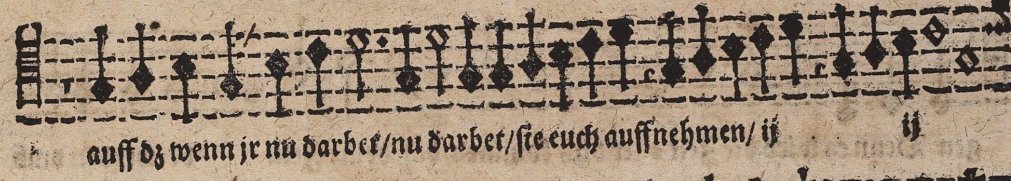 auff dz wenn jr nu darbet/nu darbet/sie euch auffnehmen/ ij ij